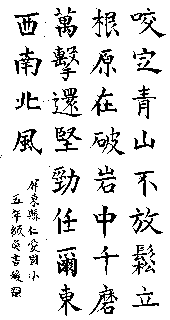 咬定青山不放鬆立
根原在破岩中千磨
萬擊還堅勁任爾東
西南北風
屏東縣仁愛國小
五年級